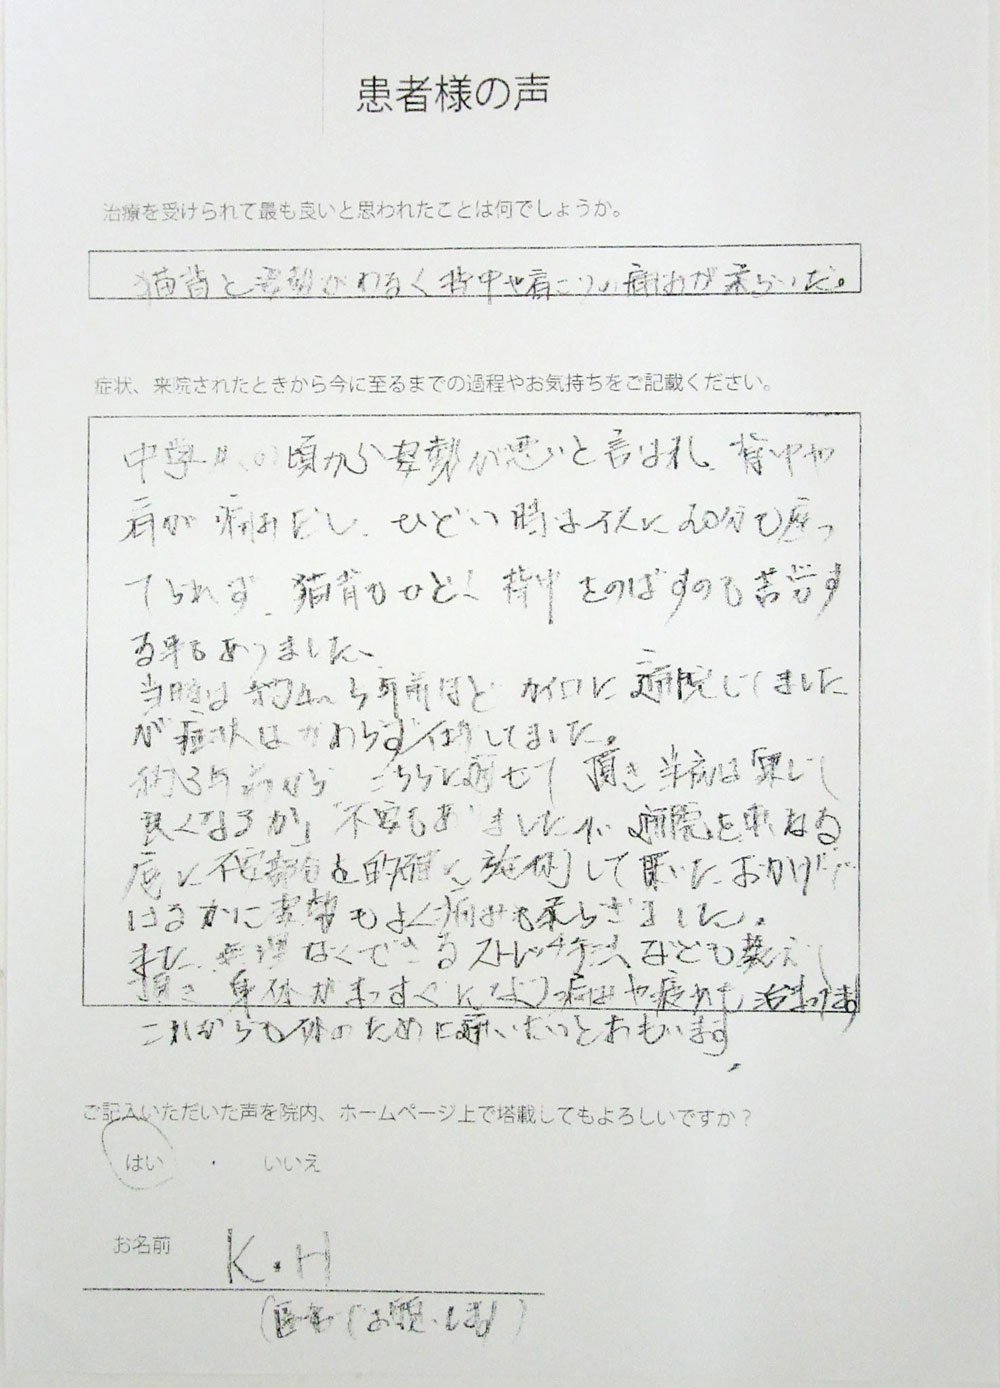 患者様の声
治療を受けられて最も良いと思われたことは何でしょうか。
猫背と姿勢がわるく背中や肩こりの痛みが柔らいだ。
症状、来院されたときから今に至るまでの過程やお気持ちをご記載ください。
中学生の頃から姿勢が悪いと言われ、背中や
肩が痛みだし、ひどい時はイスに20分も座っ
てられず、猫背もひどく背中をのばすのも苦労す
る事もありました。
当時は約4~5年前ほどカイロに通院してました
が症状はかわらず
約3年前からこちらに通せて頂き当初は「果して
良くなるか」不安もありましたが、通院を重ねる
度に不安部を的確に施術して頂いたおかげで
はるかに姿勢もよく痛みも柔らぎました。
また、無理なくできるストレッチ方法なども教えて
頂き、身体がまっすぐになり痛みや疲れも治まってます
これからも体のために通いたいとおもいます
ご記入いただいた声を院内、ホームページ上で塔載してもよろしいですか？
はい ・ いいえ
お名前 K.H
(匿名でお願いします)